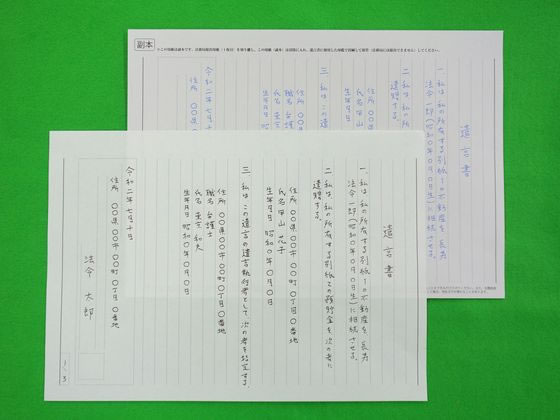 遺言書
一、私は、私の所有する別紙1の不動産を、長男
法令一郎(昭和〇年〇月〇日生)に相続させる。
二、私は、私の所有する別紙2の預貯金を、次の者に
遺贈する。
住所 〇〇県〇〇市〇〇町〇丁目〇番地
氏名 甲山 花子
生年月日 昭和〇年〇月〇日
三、私は、この遺言の遺言執行者として、次の者を指定する。
住所 〇〇県〇〇市〇〇町〇丁目〇番地
職名 弁護士
氏名 東京 和夫
生年月日 昭和〇年〇月〇日
令和二年七月十日
住所 〇〇県〇〇市〇〇町〇丁目〇番地
法令 太郎
1/3
副本
遺言書
一、私は、私の所有する別紙1の不動産を、長男
法令一郎(昭和〇年〇月〇日生)に相続させる。
二、私は、私の所
遺贈する。
住所 〇〇県
氏名 甲山
生年月日
三、私は、この遺
住所 〇〇
職名 弁護
氏名 東京
生年月日
令和二年七月十
住所 〇〇